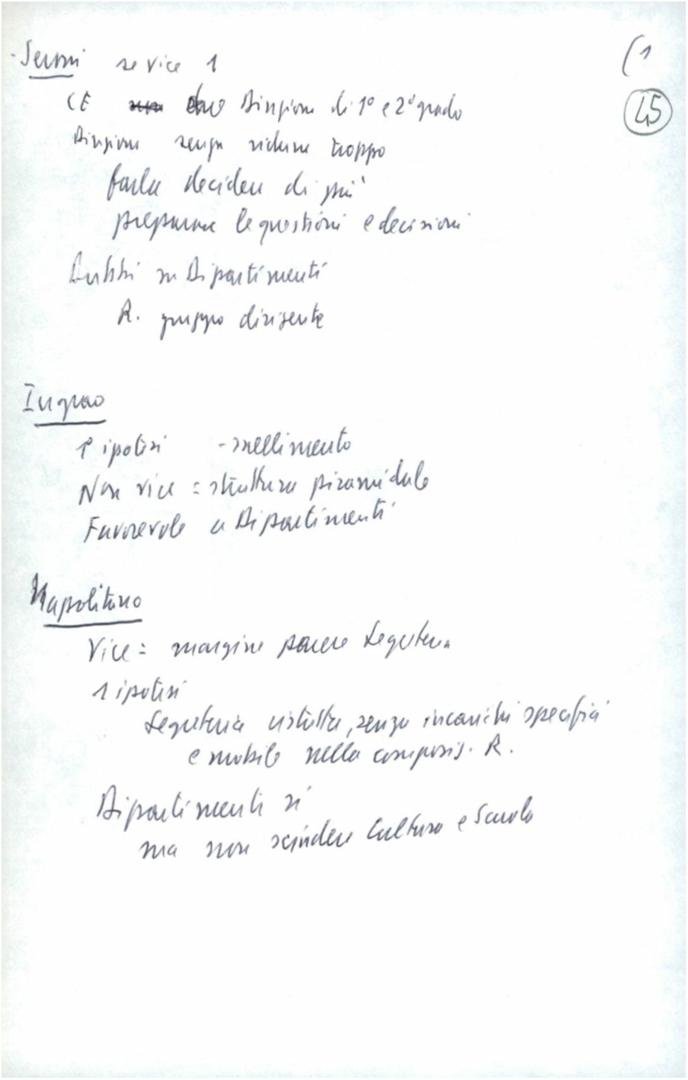 (1
45
- Seroni se vice 1
CE due Direzioni di 1° e 2° grado
Direzione senza ridurre troppo
farla decidere di più
preparare le questioni e decisioni
Dubbi su Dipartimenti
R. gruppo dirigente
Ingrao
1ª ipotesi - snellimento
Non vice = struttura piramidale
Favorevole a Dipartimenti
Napolitano
Vice = margine potere Segreteria
1 ipotesi
Segreteria ristretta, senza incarichi specifici
e mobile nella composiz. R.
Dipartimenti sì
ma non scindere Cultura e Scuola